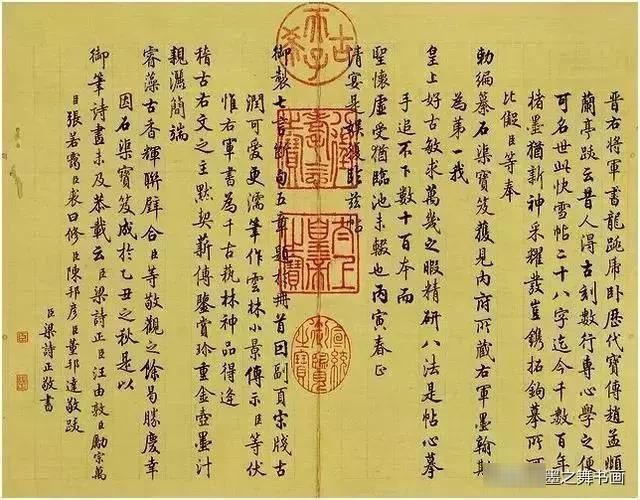 晉右將軍書龍跳虎卧歷代寶傳趙孟頫
蘭亭跋云昔人得古刻數行專心學之便
可名世此快雪帖二十八字迄今千數百年
楮墨猶新神采耀發豈鐫拓鉤摹所可
比儗臣等奉
勅編纂石渠寶笈獲見內府所藏右軍墨翰斯
為第一我
皇上好古敏求萬幾之暇精研八法是帖心摹
手追不下數十百本而
聖懷虛受猶臨池未輟也丙寅春正
清宴是娛復臨茲帖
御製七言斷句五章題於冊首因副頁宋牋古
潤可愛更濡筆作雲林小景傳示臣等伏
惟右軍書為千古執林神品得逢
稽古右文之主默契薪傳鑒賞珍重金壺墨汁
親灑簡端
睿藻古香輝聯璧合臣等敬觀之餘曷勝慶幸
因石渠寶笈成於乙丑之秋是以
御筆詩畫未及恭載云臣梁詩正臣汪由敦臣勵宗萬
臣張若靄臣裘曰修臣陳邦彥臣董邦達敬跋
臣梁詩正敬書
古希天子
太上皇帝之寶
宣統御覽之寶
墨之舞书画